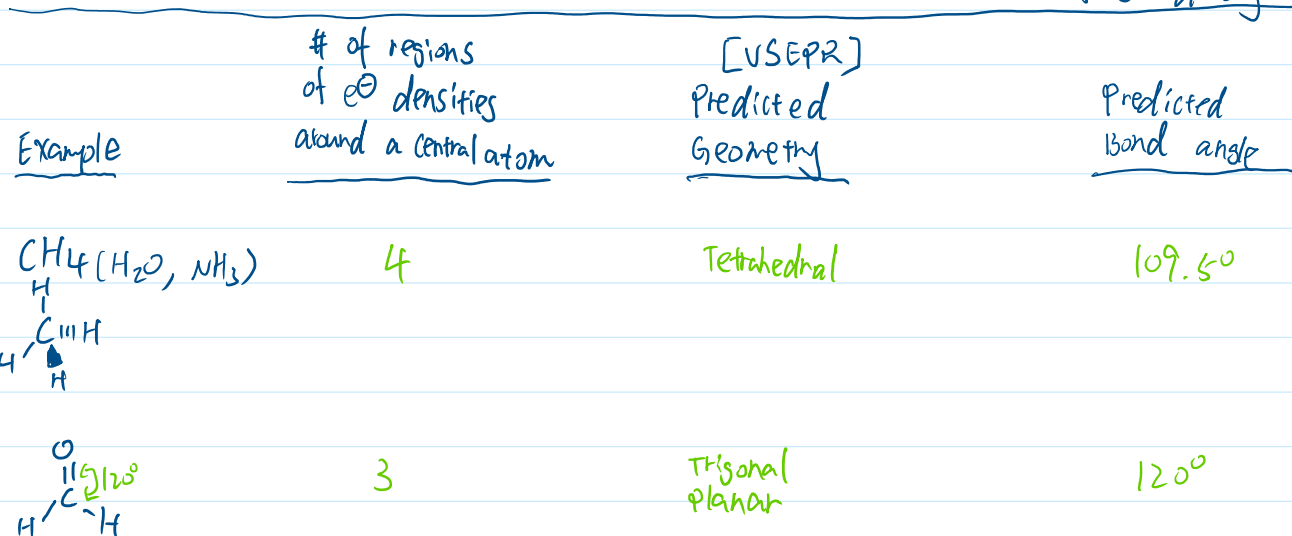 # of regions
of e⊖ densities
around a central atom
[VSEPR]
Predicted
Geometry
Predicted
Bond angle
Example
CH4 (H2O, NH3)
4
Tetrahedral
109.5°
H
C H
H
H
O
120°
C
H H
3
Trigonal
Planar
120°